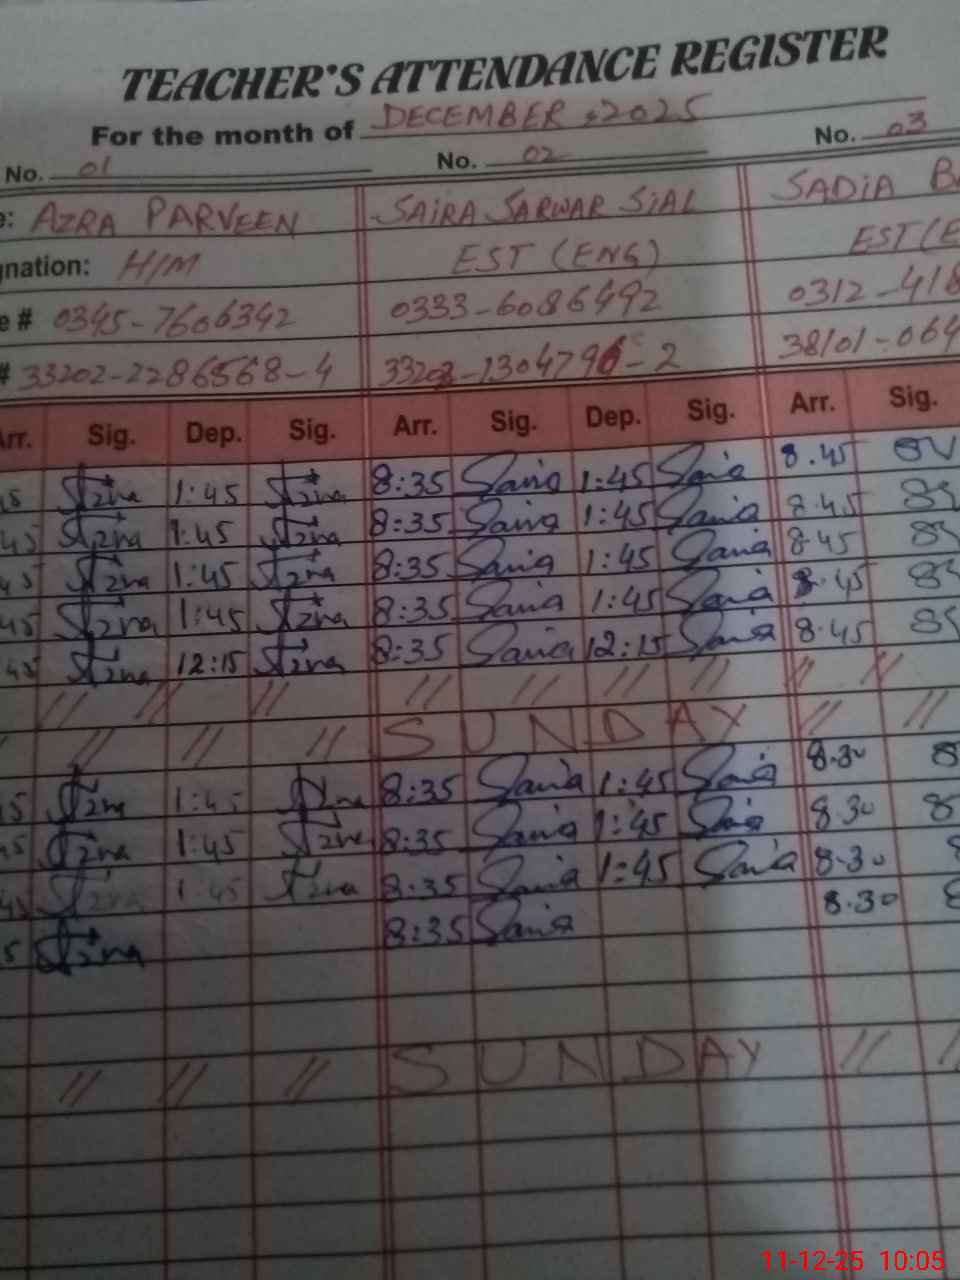 TEACHER'S ATTENDANCE REGISTER
For the month of DECEMBER, 2025
No. 01 No. 02 No. 03
e: AZRA PARVEEN SAIRA SARWAR SIAL SADIA B
gnation: H/M EST (ENG) EST (E
e # 0345-7606342 0333-6086492 0312-418
# 33202-2286568-4 33203-1304796-2 38101-064
Arr. Sig. Dep. Sig. Arr. Sig. Dep. Sig. Arr. Sig.
45 Azra 1:45 Azra 8:35 Saira 1:45 Saira 8.45
45 Azra 1:45 Azra 8:35 Saira 1:45 Saira 8.45
45 Azra 1:45 Azra 8:35 Saira 1:45 Saira 8.45
45 Azra 1:45 Azra 8:35 Saira 1:45 Saira 8.45
45 Azra 12:15 Azra 8:35 Saira 12:15 Saira 8.45
// // // // // // // // //
// // // SUNDAY // //
5 Azra 1:45 Azra 8:35 Saira 1:45 Saira 8.30
45 Azra 1:45 Azra 8:35 Saira 1:45 Saira 8.30
45 Azra 1:45 Azra 8:35 Saira 1:45 Saira 8.30
5 Azra 8:35 Saira 8.30
// // // SUNDAY //
11-12-25 10:05